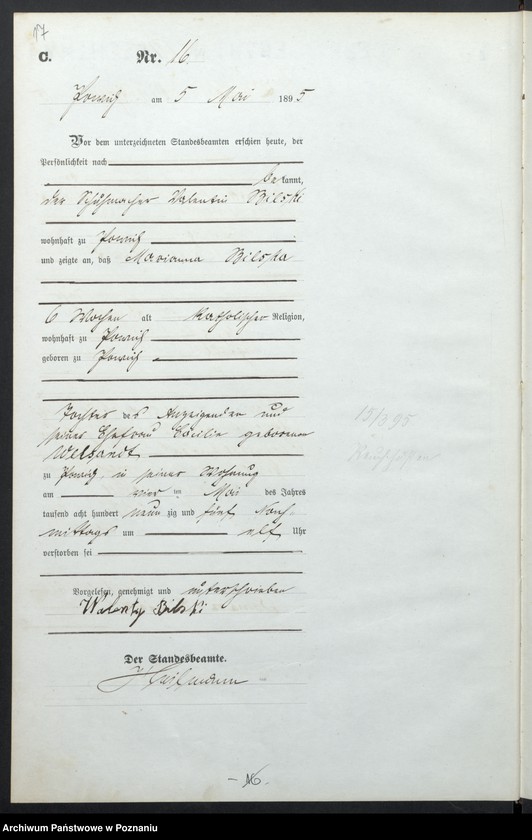 17
C. Nr. 16
Powidz am 5 Mai 1895
Vor dem unterzeichneten Standesbeamten erschien heute, der
Persönlichkeit nach
bekannt,
der Schuhmacher Valentin Bilski
wohnhaft zu Powidz
und zeigte an, daß Marianna Bilska
6 Wochen alt katholischer Religion,
wohnhaft zu Powidz
geboren zu Powidz
Tochter des Anzeigenden und
seiner Ehefrau Cäcilie geborenen
zu Powidz in seiner Wohnung
am vier ten Mai des Jahres
tausend acht hundert neun zig und fünf Nach-
mittags um elf Uhr
verstorben sei
Vorgelesen, genehmigt und unterschrieben
Walenty Bilski
Der Standesbeamte.
- 16 -
Archiwum Państwowe w Poznaniu